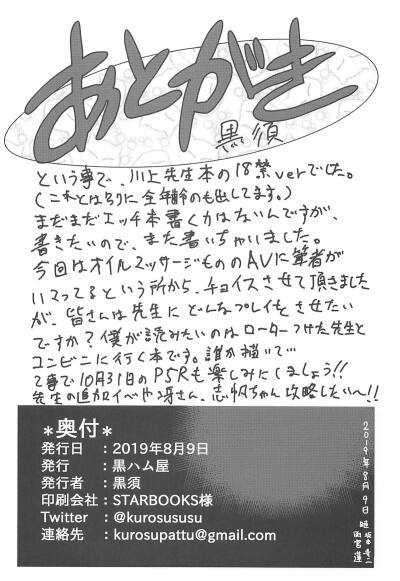 あとがき
黒須
という事で、川上先生本の18禁verでした。
(これとは別りに全年齢のも出してます。)
まだまだエッチ本書く力はないんですが、
書きたいので、また書いちゃいました。
今回はオイルマッサージもののAVに筆者が
いてってるという所から、チョイスさせて頂きました
が、皆さんは先生にどんなプレイとさせたい
ですか?僕が読みたいのはローターつけた先生と
コンビニに行く本です。誰か描いて…
て事で10月31日のP5Rも楽しみにしましょう!!
先生の追加イベや冴さん、志帆ちゃん攻略したい〜!!
*奥付*
発行日 :2019年8月9日
発行 :黒ハム屋
発行者 :黒須
印刷会社:STARBOOKS様
Twitter :@kurosususu
連絡先 :kurosupattu@gmail.com
2019年8月9日
雨宮蓮